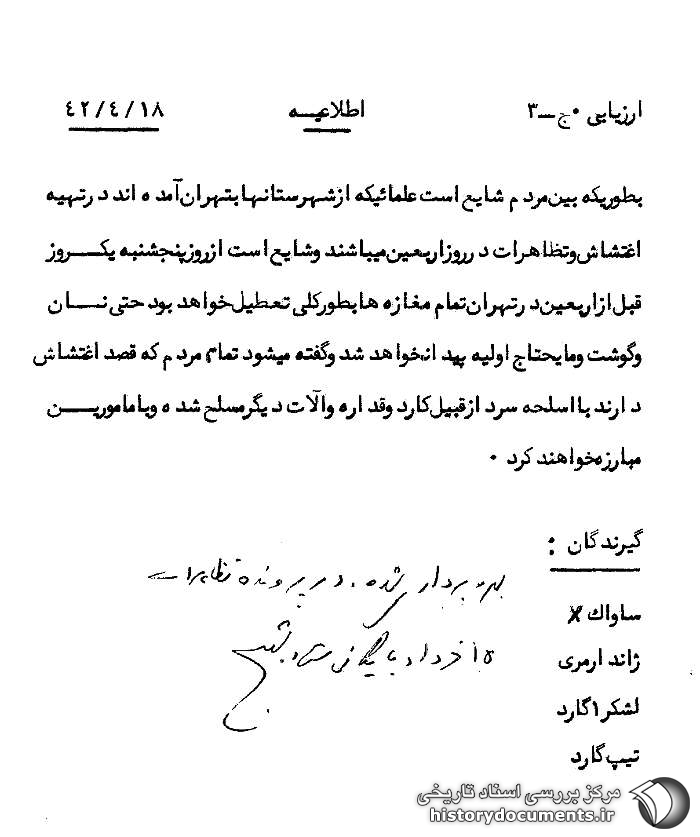 ارزیابی ۰ج ــ ۳ اطلاعیـــه ۴۲/۴/۱۸
بطوریکه بین مردم شایع است علمائیکه ازشهرستانها بتهران آمده اند درتهیه
اغتشاش وتظاهرات درروزاربعین میباشند وشایع است ازروزپنجشنبه یکـــروز
قبل ازاربعین درتهران تمام مغازه ها بطورکلی تعطیل خواهد بود حتی نـــان
وگوشت ومایحتاج اولیه پیدا نخواهد شد وگفته میشود تمام مردم که قصد اغتشاش
دارند با اسلحه سرد ازقبیل کارد وقداره وآلات دیگرمسلح شده وبا ماموریـــن
مبارزه خواهند کرد ۰
گیرندگان :
بهره برداری شده، در پرونده تظاهرات
ساواک x
۱۵ خرداد بایگانی شود
ژاندارمری
لشکر۱گارد
تیپ گارد
مرکز بررسی اسناد تاریخی
historydocuments.ir